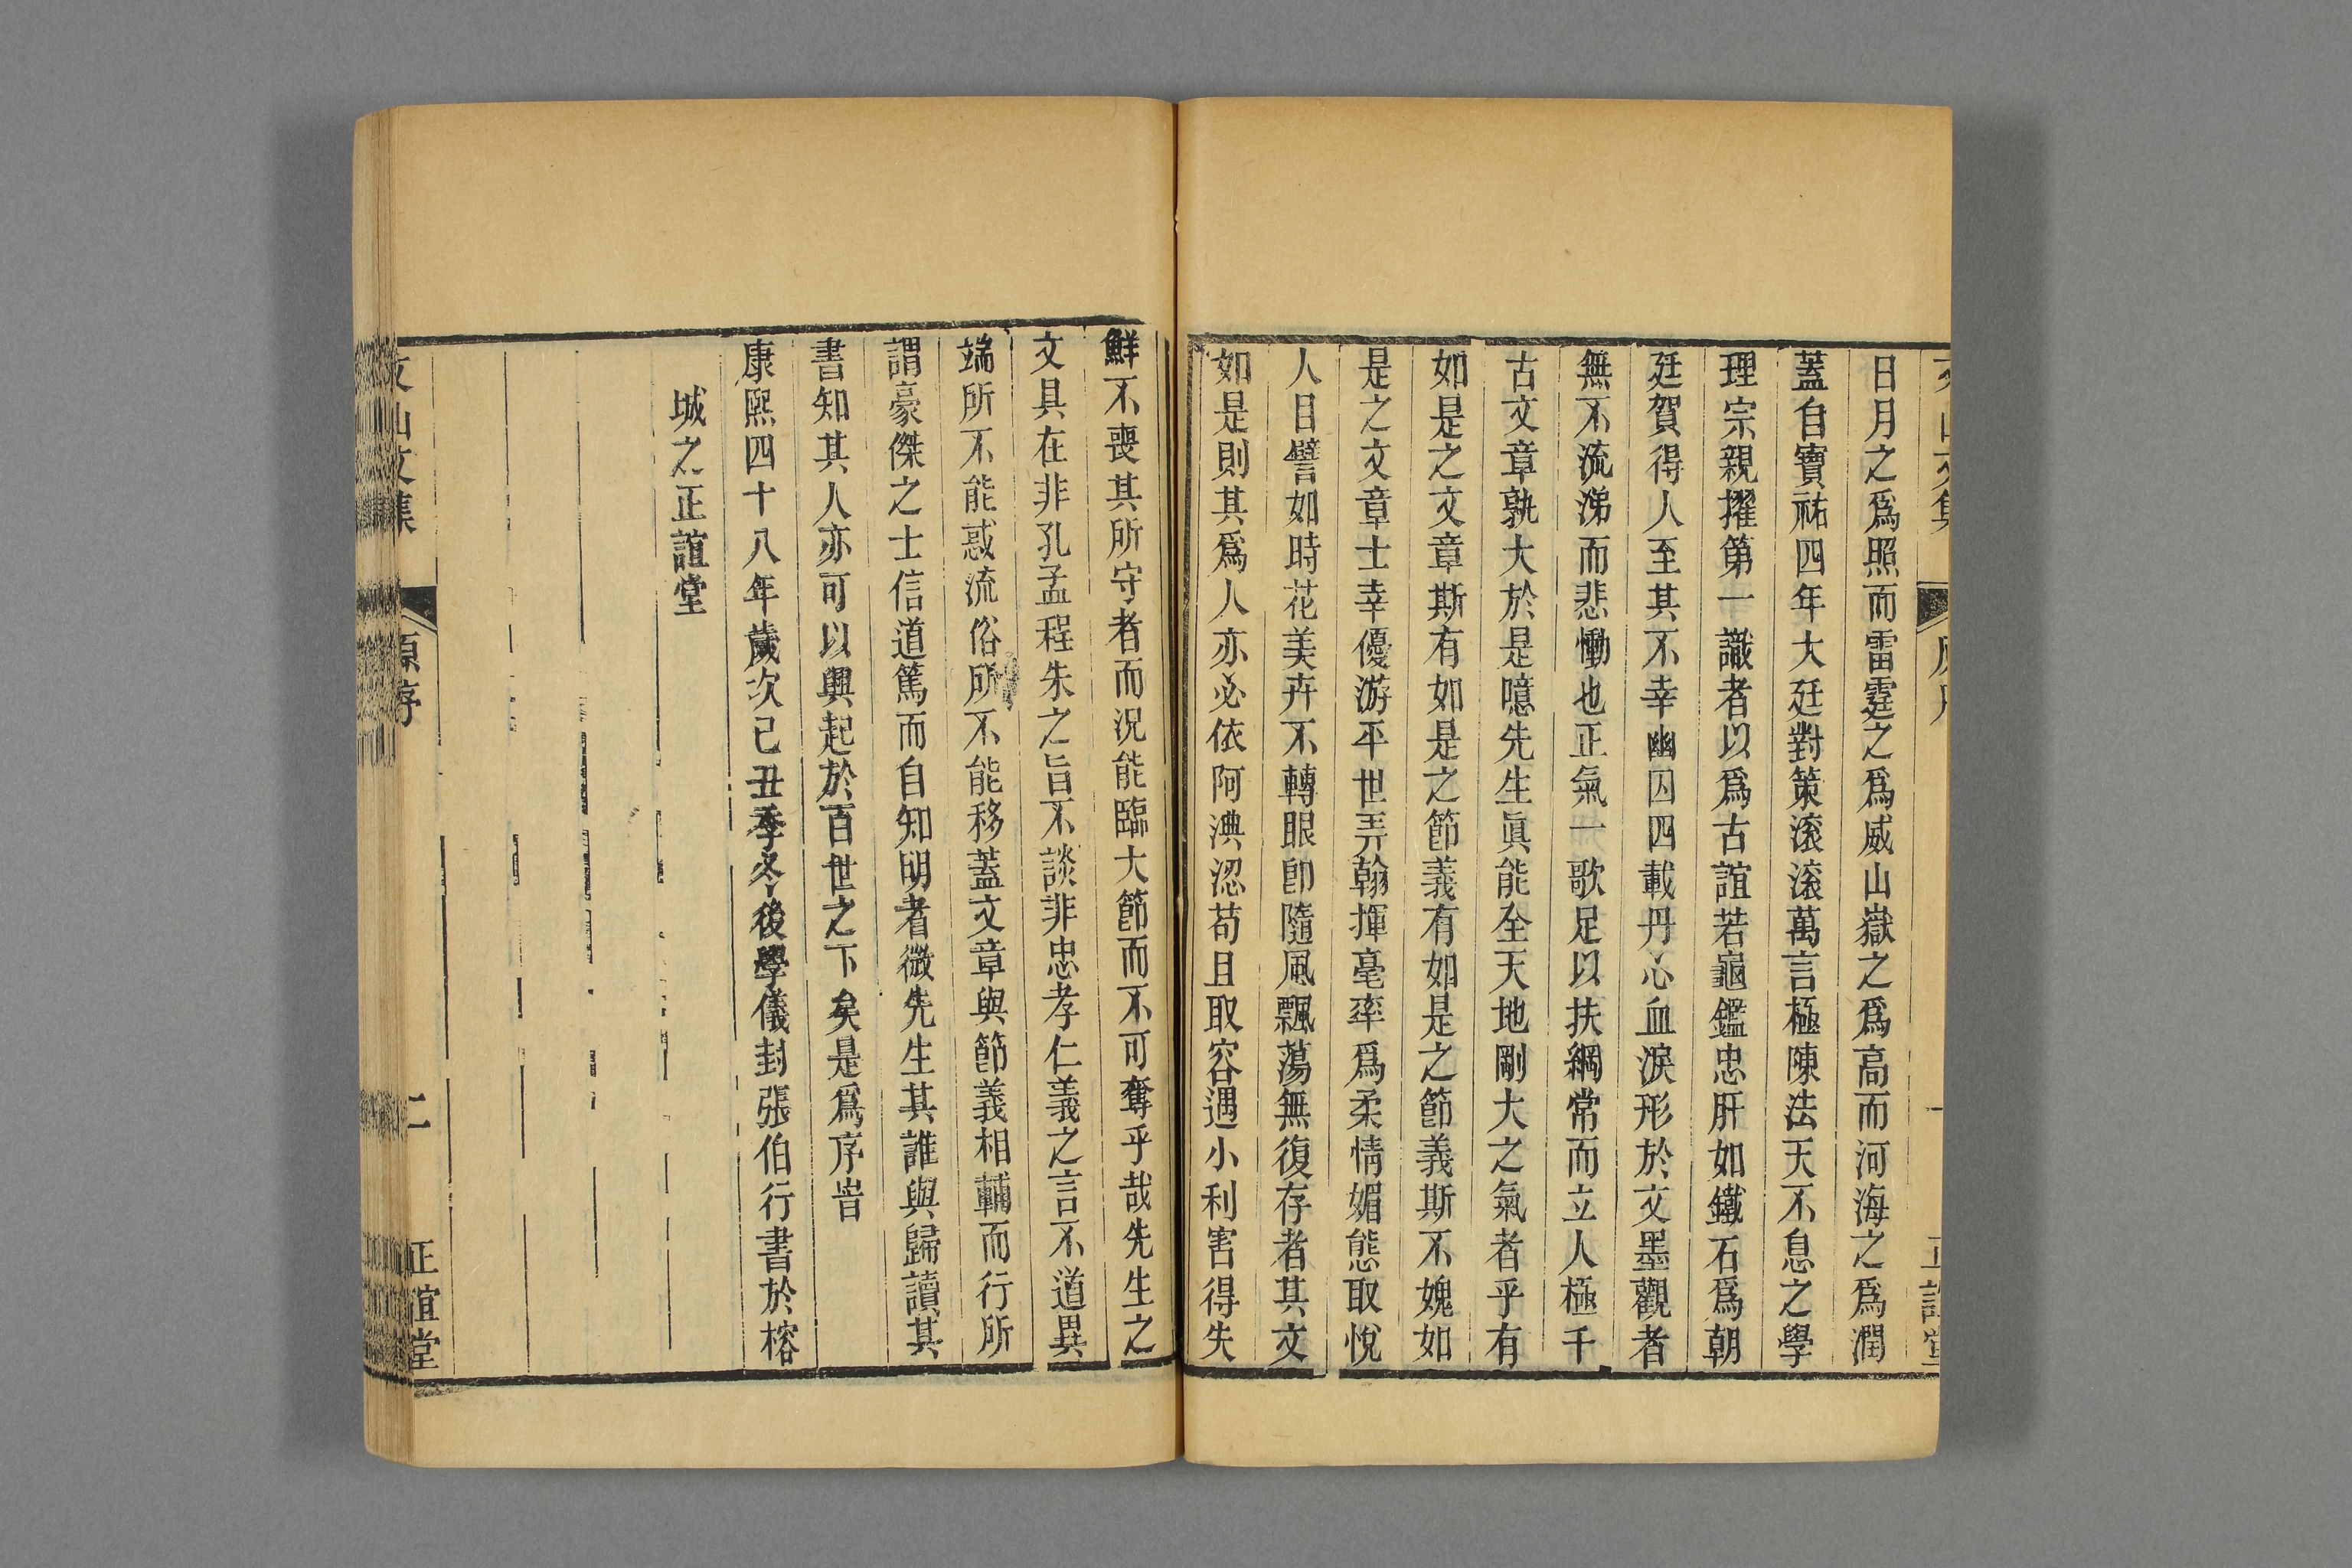 日月之爲照而雷霆之爲威山嶽之爲高而河海之爲潤
蓋自寶祐四年大廷對策滚滚萬言極陳法天不息之學
理宗親擢第一識者以爲古誼若龜鑑忠肝如鐵石爲朝
廷賀得人至其不幸幽囚四載丹心血淚形於文墨觀者
無不流涕而悲慟也正氣一歌足以扶綱常而立人極千
古文章孰大於是噫先生眞能全天地剛大之氣者乎有
如是之文章斯有如是之節義有如是之節義斯不媿如
是之文章士幸優游平世弄翰揮毫率爲柔情媚態取悅
人目譬如時花美卉不轉眼卽隨風飄蕩無復存者其文
如是則其爲人亦必依阿淟涊苟且取容遇小利害得失
鮮不喪其所守者而况能臨大節而不可奪乎哉先生之
文具在非孔孟程朱之旨不談非忠孝仁義之言不道異
端所不能惑流俗所不能移蓋文章與節義相輔而行所
謂豪傑之士信道篤而自知明者微先生其誰與歸讀其
書知其人亦可以興起於百世之下矣是爲序旹
康熙四十八年歲次己丑季冬後學儀封張伯行書於榕
城之正誼堂
文山文集 原序 二 正誼堂